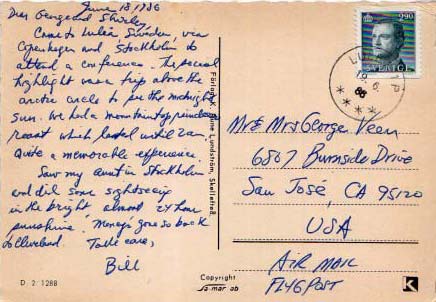 June 18 1986
Dear George and Shirley,
Came to Luleå Sweden, via
Copenhagen and Stockholm to
attend a conference. The special
highlight was a trip above the
arctic circle to see the midnight
sun. We had a mountaintop
roast which lasted until 2am.
Quite a memorable experience.
Saw my aunt in Stockholm
and did some sightseeing
in the bright almost 24 hour
sunshine! Money's gone so back
to Cleveland. Take care,
Bill
D 2 1288
Förlag: K. Lundström, Skellefteå.
Copyright
Sa-mar ab
290
SVERIGE
LU
19 6
86
Mr & Mrs George Veon
6867 Burnside Drive
San José, CA 95120
USA
AIR MAIL
FLYGPOST
K